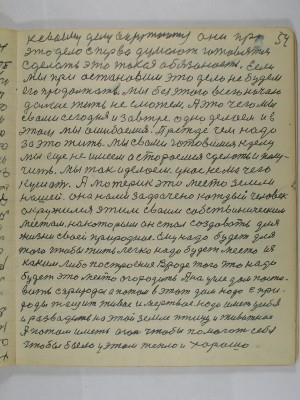 54
кевашму делу они пр
это дело сперва думают готовятся
сделать это такая обязаность. Если
мы при остановим это дело не будем
его продолжать. Мы без этого вечно начало
дальше жить не сможем. А это чего мы
с вами сегодня и завтра одно делаем и в
этом мы ошибаемся. Прежде чем надо
за это жить. Мы с вами готовимся к делу
мы еще не имеем а стораемся сделать и полу-
чить. Мы так и делаем. у нас к ему чего
кушат. А материк это место земли
нашей. она нами задачено каждый человек
окружился этим своим собственическим
местом, на котором он стал создовать для
жизни своей природние. Ему надо будет для
того чтобы жить легко надо будет место
каким либо построение. Вроде того это надо
будет это место огородить. Она уже для
с природы а потом в этот дом надо с при-
роды тащит живое и мертвое. надо иметь у себя
и разводить на этой земле птицу и животное
А потом иметь огон чтобы помогат себе
чтобы было у этом тепло и хорошо.